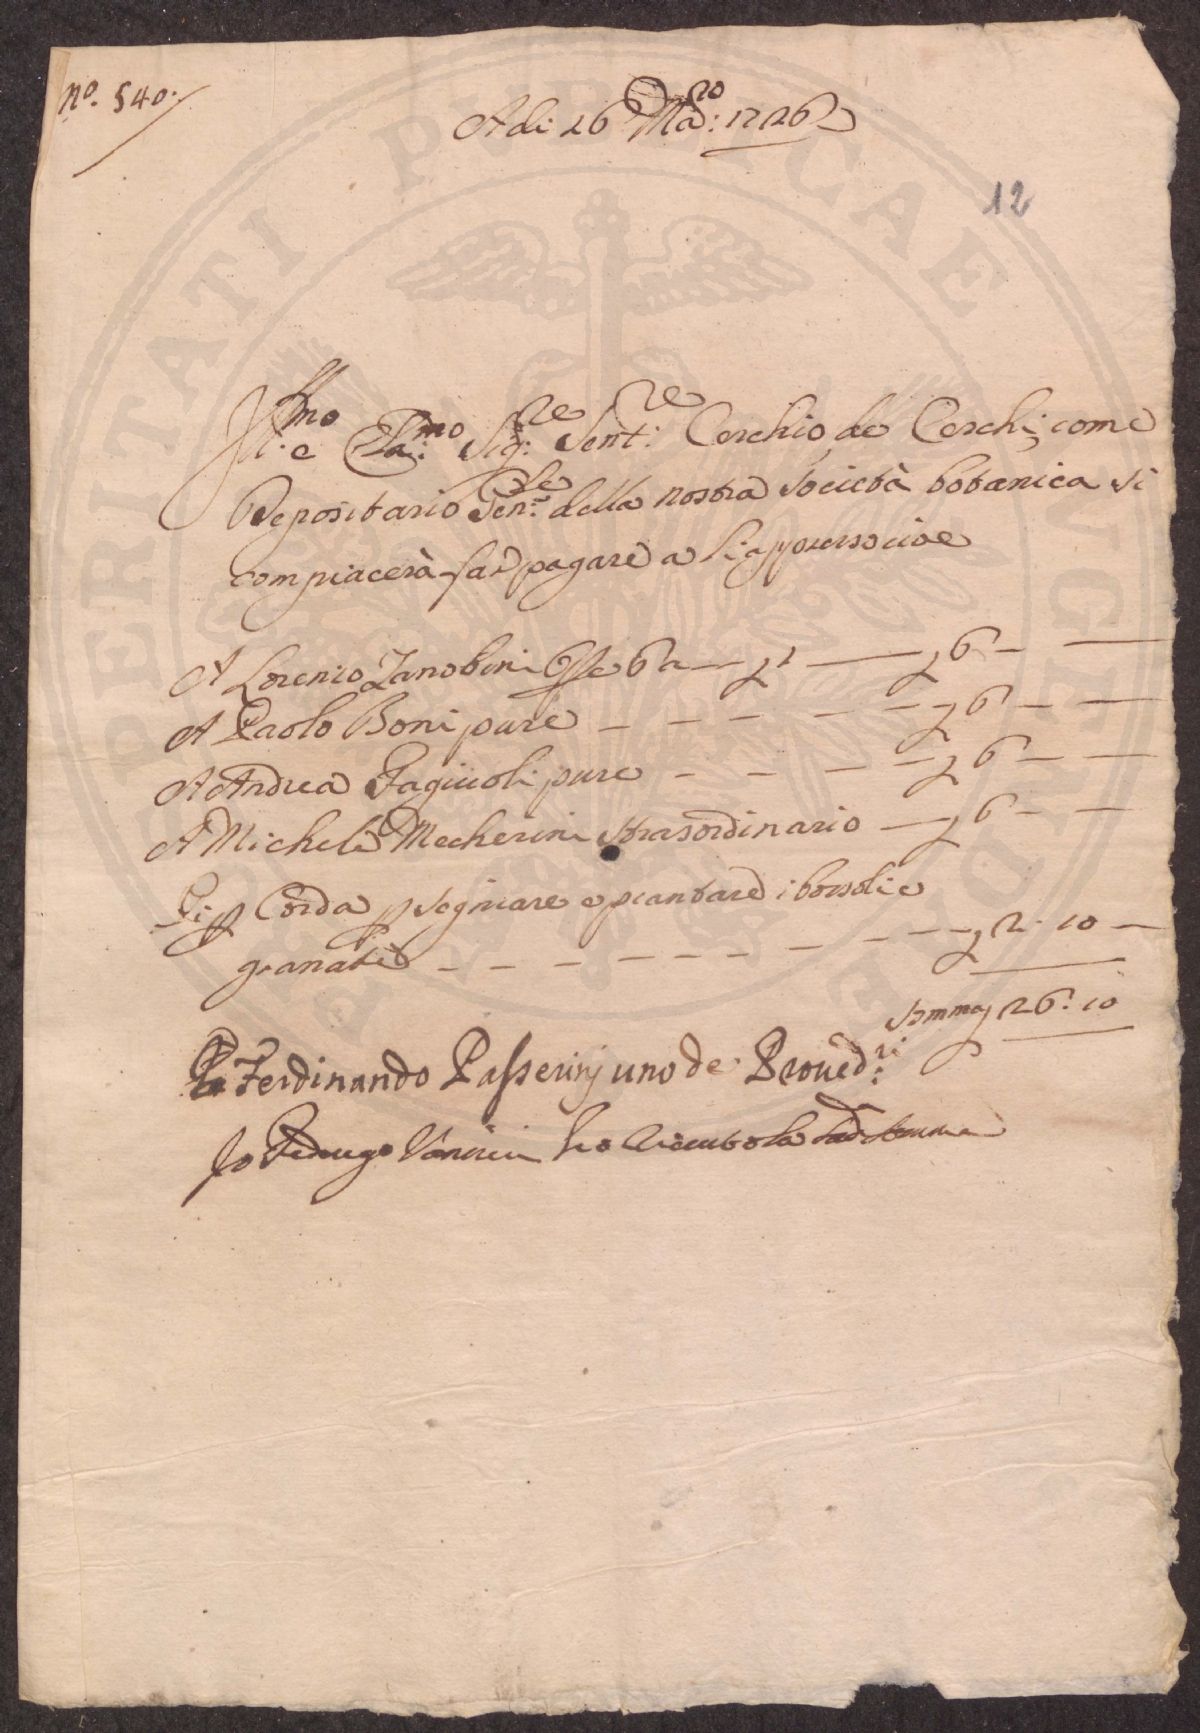 No. 540.
A di 26 Ma:ro 1726
12
Ill:mo e Cla:mo Sig:re Sen:re Cerchio de Cerchi, come
Depositario Gen:le della nostra Società botanica si
compiacerà far pagare a Li appresso cioè
A Lorenzo Zanobini Opre 6 a £ 1 — £ 6 —
A Paolo Boni pure — — — £ 6 — —
A Andrea Fagiuoli pure — — — £ 6 — —
A Michele Mecherini strasordinario — £ 6 — —
E p Corda p segniare e piantare i bossoli e
granate — — — — — — £ 2. 10 —
Somma £ 26. 10
Ferdinando Passerinj uno de Proued:ri
Io ho la
OPERITATI PUBLICAE